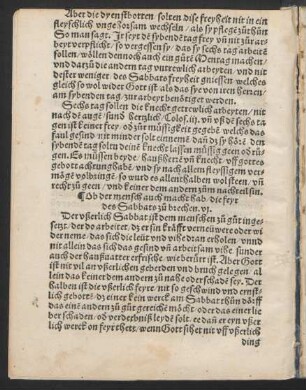 Aber die dyenstbotten solten dise freyheit nit in ein
fleyschlich unge horsam wechseln / als sy pflegē zůr hůn
So man sagt. Ir seyt dē sybendē tag frey vō nit zůr ar=
beyt verpflicht / so vergessen sy / das sy sechs tag arbeitē
sollen / wöllen dennoch auch ein gůtē Mentag machen /
und darzů die andern tag untrewlich arbeyten / und nit
dester weniger des Sabbats freyheit gniessen / welches
gleich so wol wider Gott ist / als das sye von iren herren /
am sybenden tag / zur arbeyt benötiget werden.
Sechs tag sollen die knecht getrewlich arbeyten / nit
nach dē augē / sund hertzlich / Coloss. iij. vn̄ uff dē sechs ta
gen ist keiner frey / od zůr müssigkeit gegebē / welchs das
faul gesind nit minder solt erkennē / das dan̄ dz sy hörē / den
sybendē tag soltu deinē knecht lassen müssig geen od růg=
gen. Es müssen beyde / haußherrē vn̄ knecht / uff gottes
gebot achtung habē / und sy nach allem fleyssigem ver=
mögē volbringē / so wurd es allenthalben wol steen / vn̄
recht zů geen / und keiner dem andern zům nachteil sin.
¶ Ob der mensch auch macht hab / die feyr
des Sabbats zů brechen. vj.
Der usserlich Sabbat ist dem menschen zů gůt inge=
setzt / der do arbeitet / dz er sin krāfft vernewere oder wi
der neme / das sich die leüt und vihe dran erholen / vnnd
nit allein das sich das gesind vō arbeitsam vihe / sunder
auch der haußvatter erfrische / wie berürt ist. Aber Gott
ist nit vil an usserlichen geberden und bruch gelegen / al
lein das keiner dem andern zů nahe oder schade sey. Der
halben ist die usserlich feyre / nit so geschwind und ernst=
lich gebottē / dz einer kein werck am Sabbat thůn dörff
das eine andern zů gůt gereiche möcht / oder das einer lie
ber schaden / od verderbniß leydē solt / ee dan̄ er eyn usser
lich werck on feyr thete / wenn Gott sihet nit uff usserlich
ding